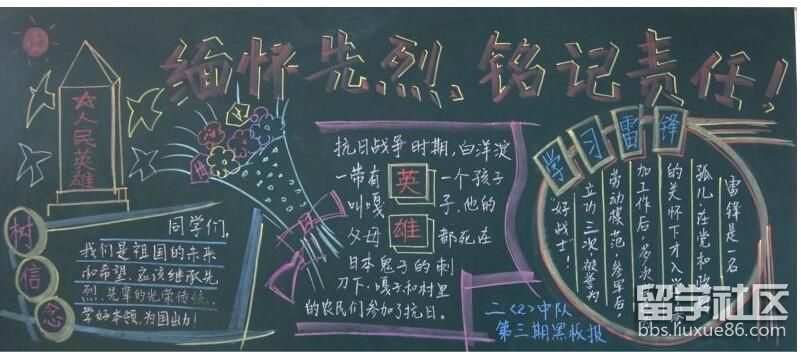 缅怀先烈、铭记责任！
人民英雄
树信念
同学们，
我们是祖国的未来
和希望，应该继承先
烈、先辈的光荣传统，
学好本领，为国出力！
抗日战争时期，白洋淀
一带有 英 一个孩子
叫嘎 子，他的
父母 雄 都死在
日本鬼子的刺
刀下，嘎子和村里
的农民们参加了抗日。
学习雷锋
雷锋是一名
孤儿，在党和政
的关怀下才入
加工作后，多次
劳动模范，参军后，
立功三次，被誉为
“好战士”！
二〈2〉中队
第三期黑板报
留学社区
bbs.liuxue86.com